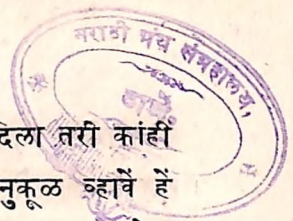 मराठी ग्रंथ संग्रहालय,
दिला तरी कांही
नुकूळ व्हावें हें